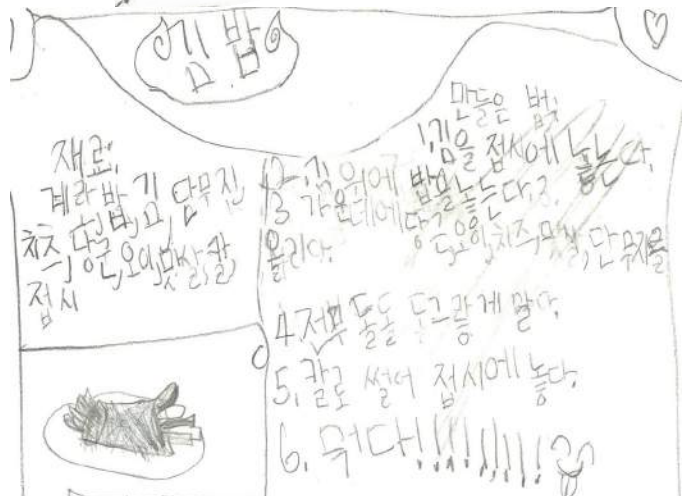 김밥
재료,
계란, 밥, 김, 담무진,
치즈, 당근, 오이, 맛살, 칼,
접시
만든은 법,
1, 김을 접시에 놓는다,
2, 김 위에 밥을 놓는다, 3,
3 가운데에 당근
오이, 치즈, 맛살, 단무지를
올리다.
4. 저부 돌돌 두그랗게 말다,
5, 칼로 썰어 접시에 놓다,
6, 먹다!!!!!!!!!